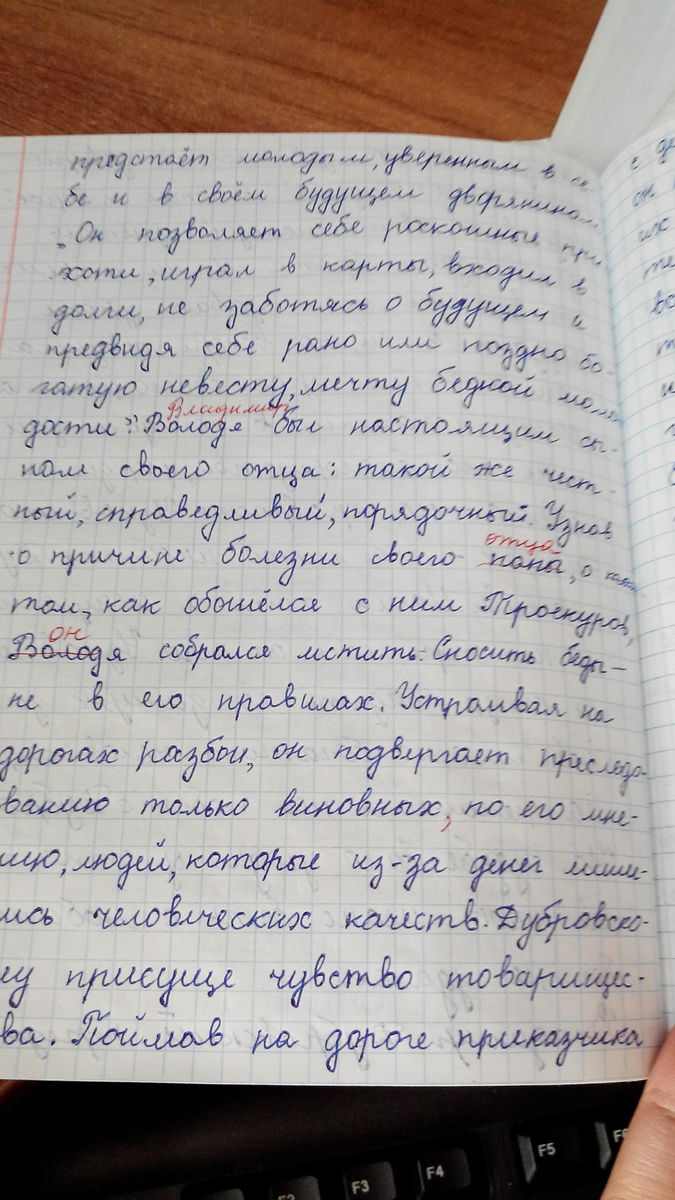 предстаёт молодым, уверенным в се
бе и в своём будущем дворянином
„Он позволяет себе роскошные при
хоти, играл в карты, входил в
долги, не заботясь о будущем и
предвидя себе рано или поздно бо-
гатую невесту, мечту бедной моло
Владимир
дости". Володя был настоящим сы-
ном своего отца: такой же чест-
ный, справедливый, порядочный. Узнав
отца
о причине болезни своего папы, о
том, как обошёлся с ним Троекуров,
он
Володя собрался мстить. Сносить беды-
не в его правилах. Устраивая на
дорогах разбои, он подвергает преследо-
ванию только виновных, по его мне-
нию, людей, которые из-за денег лиши-
ись человеческих качеств. Дубровско-
му присуще чувство товарищес-
ва. Поймав на дороге приказчика
с де
он
их
те
во
F3
F4
F5